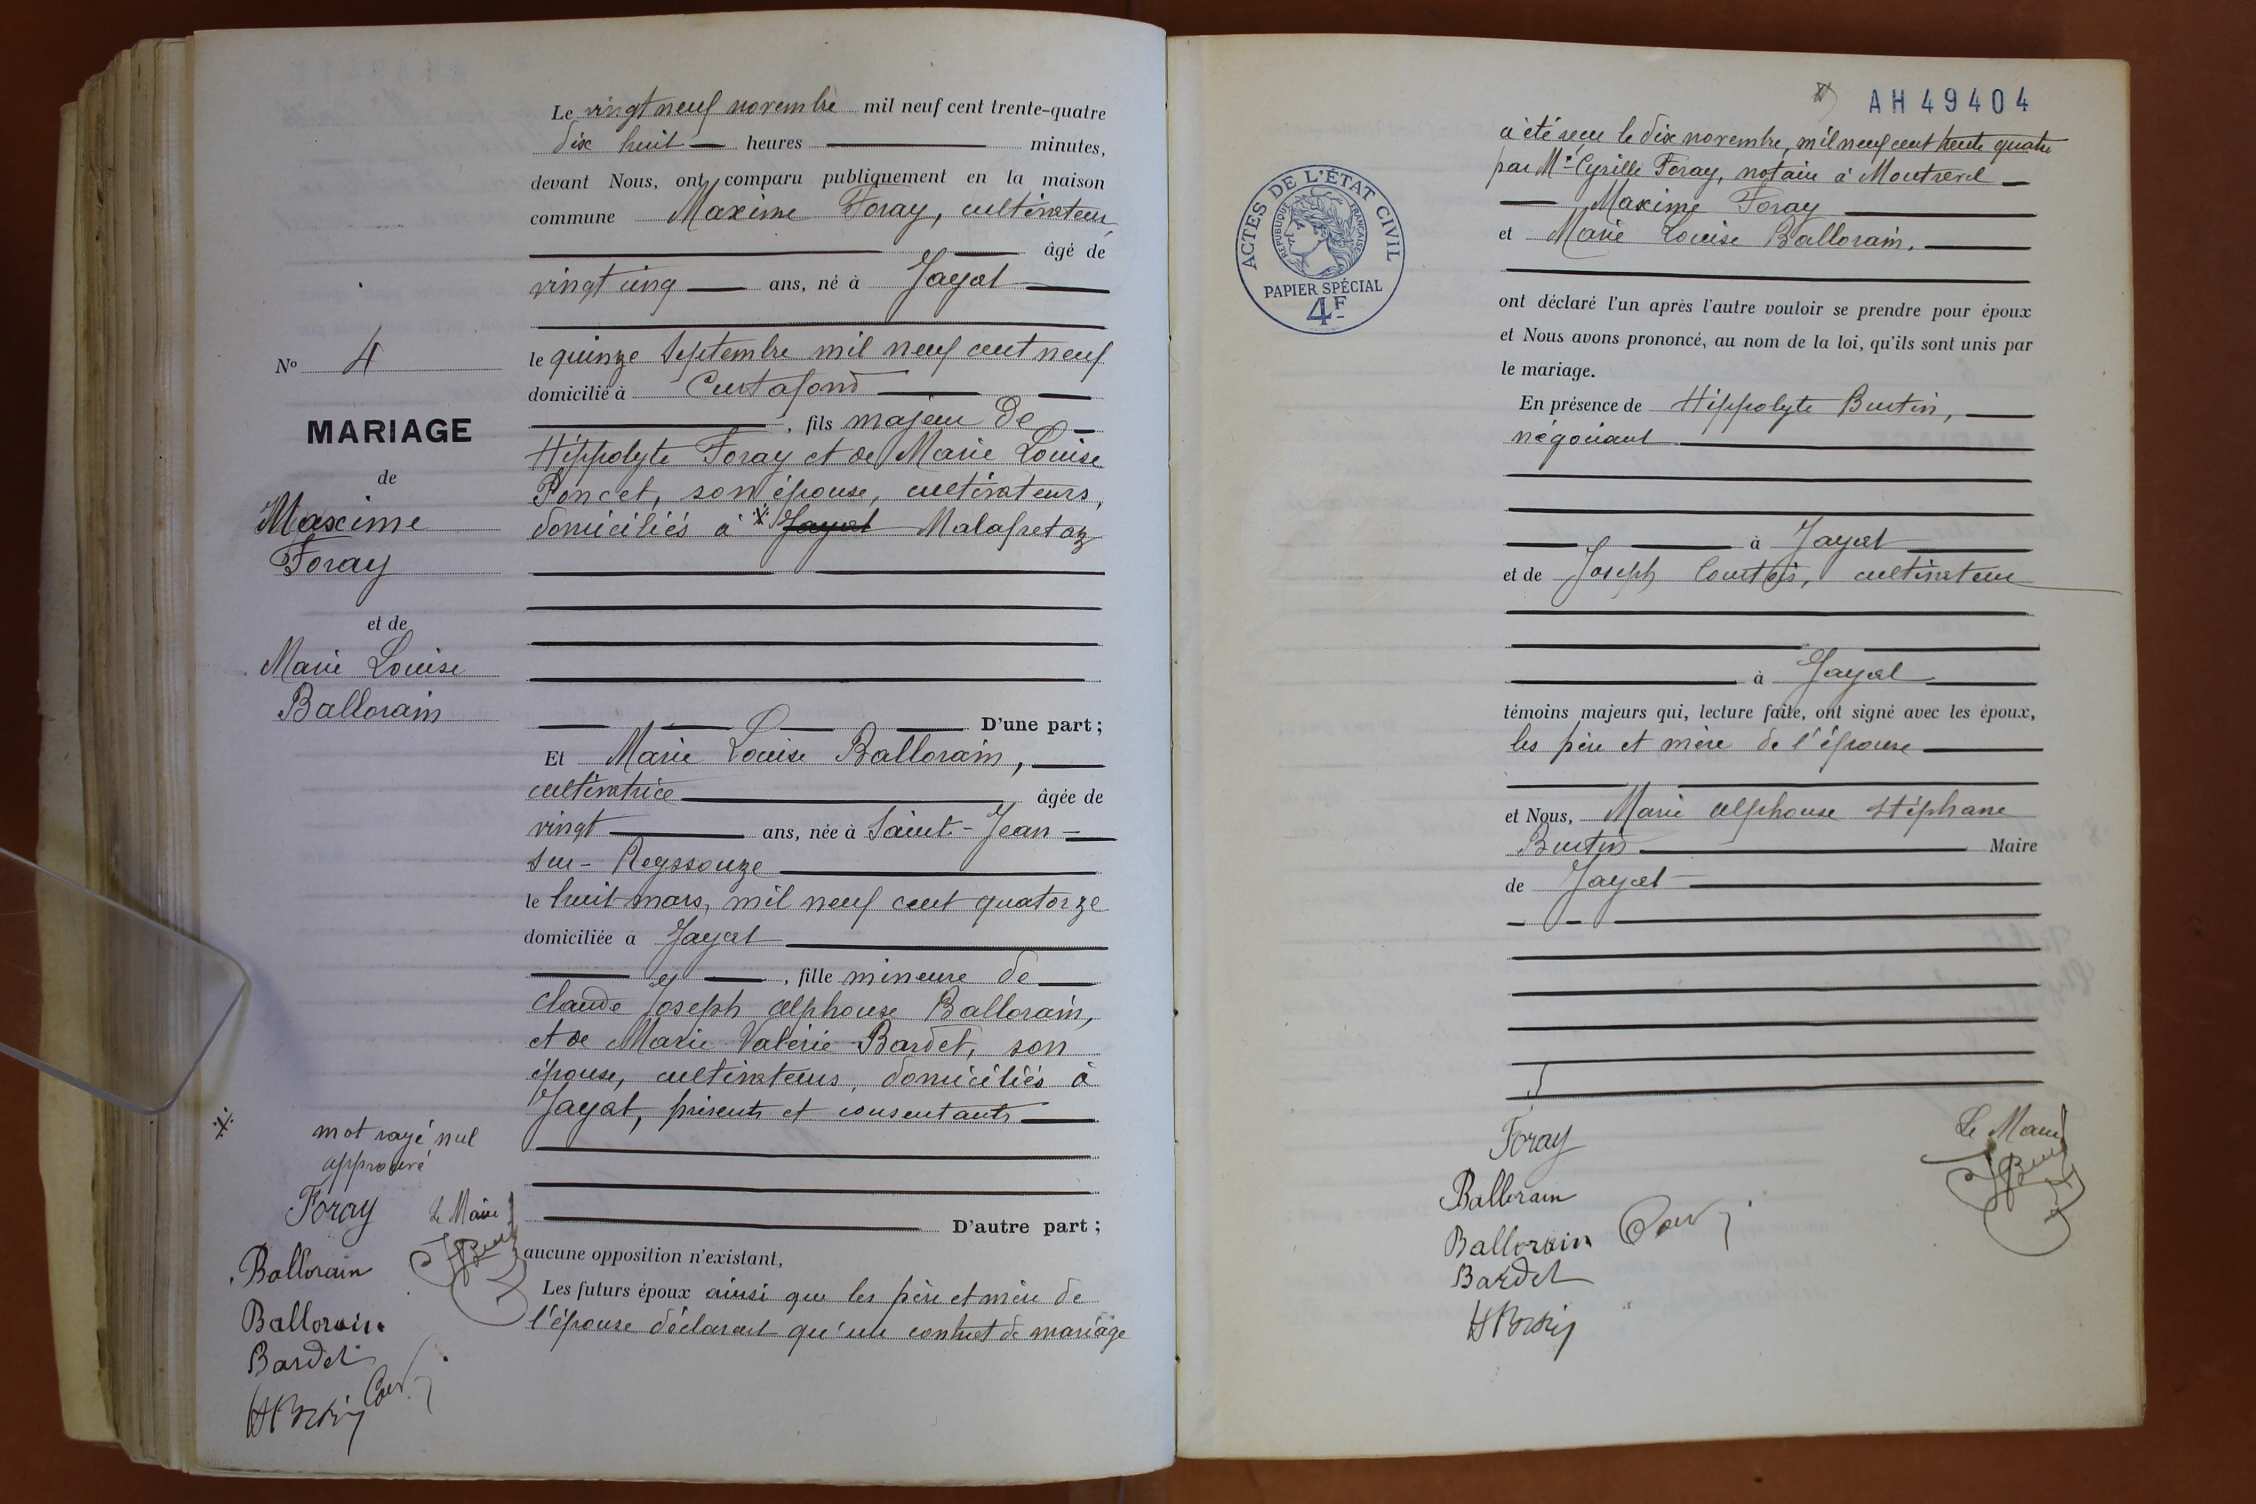 Le vingt neuf novembre mil neuf cent trente-quatre
dix huit heures minutes,
devant Nous, ont comparu publiquement en la maison
commune Maxime Foray, cultivateur,
âgé de
vingt cinq ans, né à Jayat
le quinze Septembre mil neuf cent neuf
domicilié à Curtafond
, fils majeur de
Hippolyte Foray et de Marie Louise
Poncet, son épouse, cultivateurs,
domiciliés à Jayat Malafretaz
D'une part ;
Et Marie Louise Ballorain,
cultivatrice âgée de
vingt ans, née à Saint-Jean-
sur-Reyssouze
le huit mars, mil neuf cent quatorze
domiciliée à Jayat
, fille mineure de
Claude Joseph Alphonse Ballorain,
et de Marie Valérie Bardet, son
épouse, cultivateurs, domiciliés à
Jayat, présents et consentants
D'autre part ;
aucune opposition n'existant,
Les futurs époux ainsi que les père et mère de
l'épouse déclarant qu'un contrat de mariage
No 4
MARIAGE
de
Maxime
Foray
et de
Marie Louise
Ballorain
mot rayé nul
approuvé
Foray
Le Maire
Ballorain
Ballorain
Bardet
AH 49404
a été reçu le dix novembre, mil neuf cent trente quatre
par Me Cyrille Foray, notaire à Montrevel
Maxime Foray
et Marie Louise Ballorain,
ACTES DE L'ÉTAT CIVIL
RÉPUBLIQUE FRANÇAISE
PAPIER SPÉCIAL
4F
ont déclaré l'un après l'autre vouloir se prendre pour époux
et Nous avons prononcé, au nom de la loi, qu'ils sont unis par
le mariage.
En présence de Hippolyte Burtin,
négociant
à Jayat
et de Joseph Courtois, cultivateur
à Jayat
témoins majeurs qui, lecture faite, ont signé avec les époux,
les père et mère de l'épouse
et Nous, Marie Alphonse Stéphane
Burtin Maire
de Jayat
Foray
Le Maire
Ballorain
Ballorain
Bardet